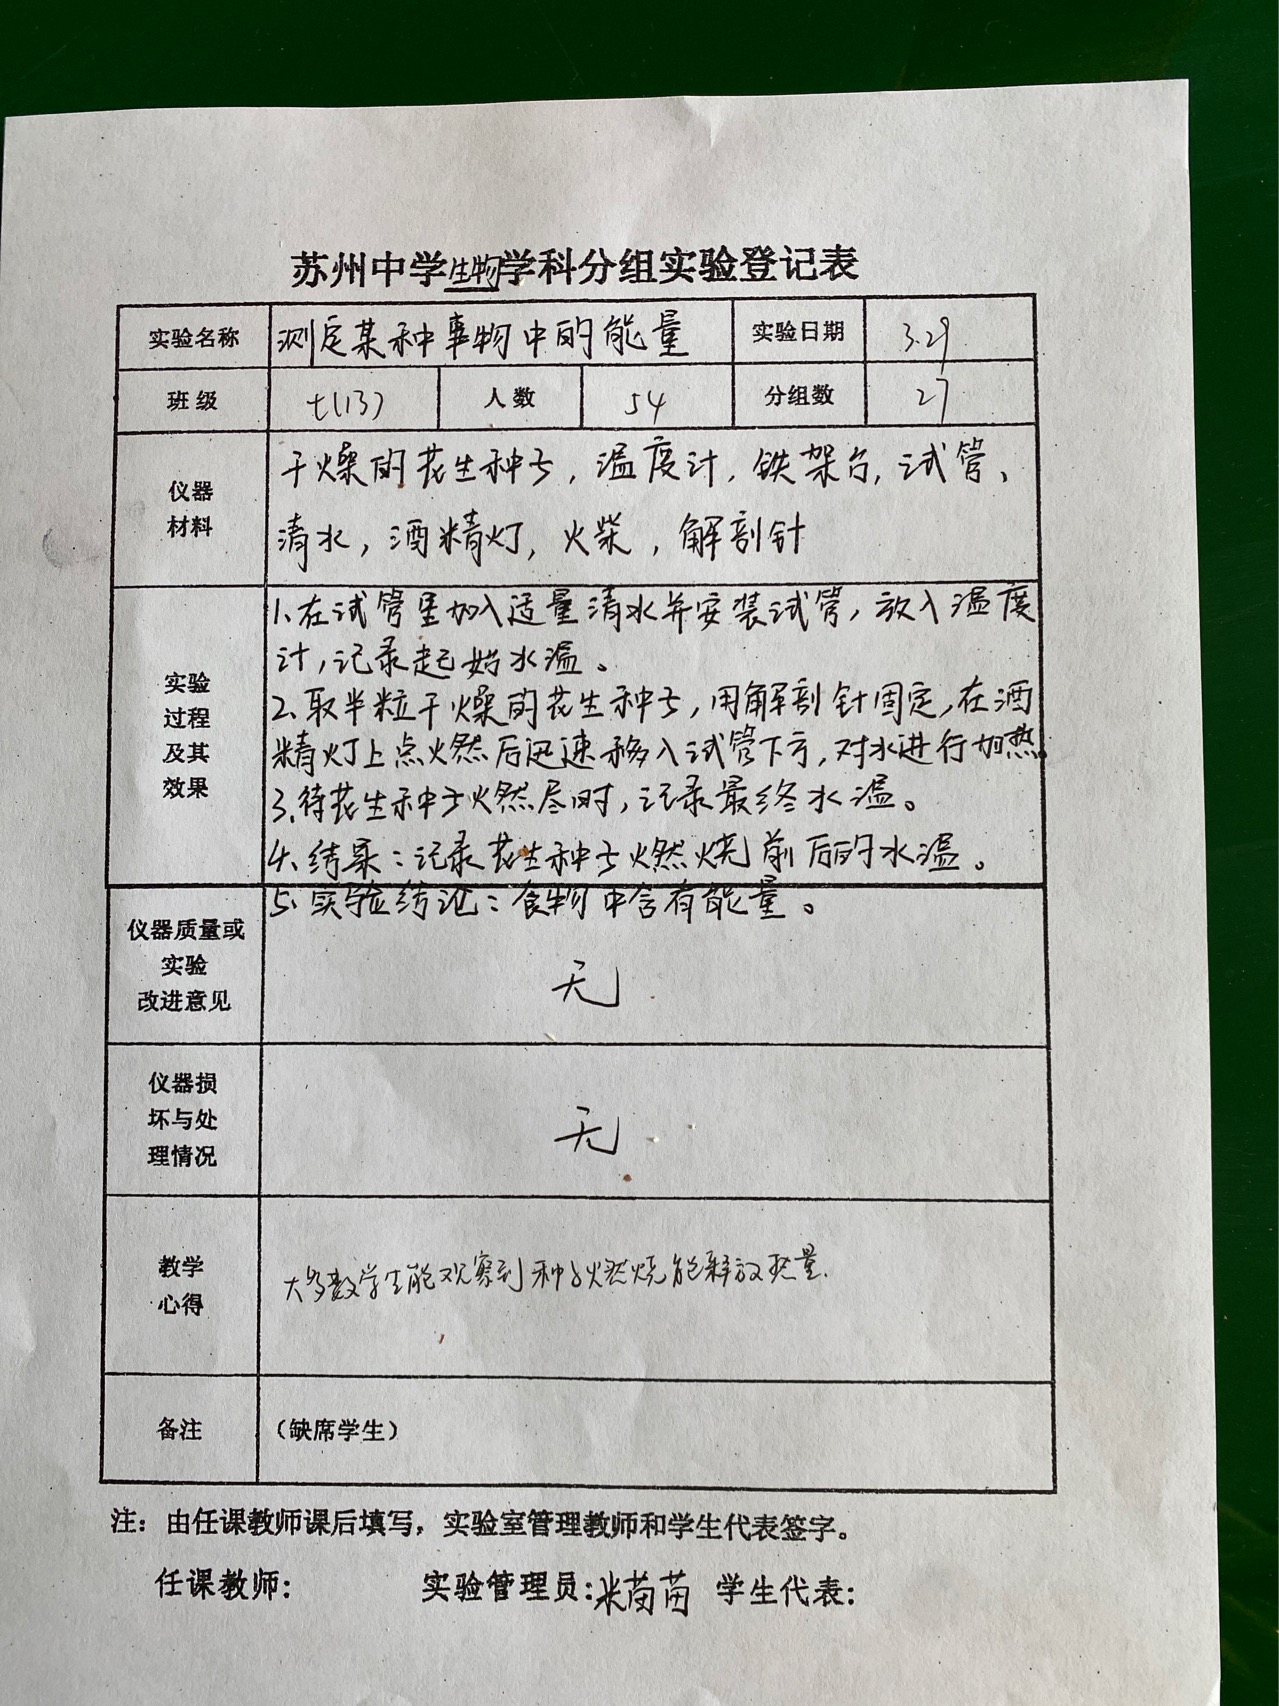 苏州中学生物学科分组实验登记表
实验名称 测定某种事物中的能量 实验日期 3.29
班级 七(13) 人数 54 分组数 27
仪器
材料
干燥的花生种子，温度计，铁架台，试管、
清水，酒精灯，火柴，解剖针
实验
过程
及其
效果
1、在试管里加入适量清水并安装试管，放入温度
计，记录起始水温。
2、取半粒干燥的花生种子，用解剖针固定，在酒
精灯上点火然后迅速移入试管下方，对水进行加热。
3、待花生种子火然尽时，记录最终水温。
4、结果：记录花生种子火然烧前后的水温。
5、实验结论：食物中含有能量。
仪器质量或
实验
改进意见
无
仪器损
坏与处
理情况
无
教学
心得
大多数学生能观察到种子燃烧能释放热量.
备注 （缺席学生）
注：由任课教师课后填写，实验室管理教师和学生代表签字。
任课教师: 实验管理员:米苗苗 学生代表: